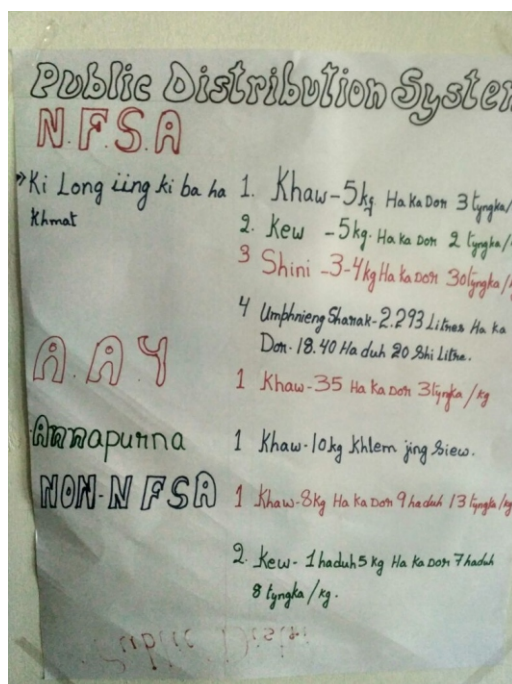 Public Distribution System
N.F.S.A
Ki Long iing ki ba ha
khmat
1. Khaw-5kg. Ha Ka Don 3 tyngka/
2. Kew -5kg. Ha Ka Don 2 tyngka/
3 Shini -3-4kg Ha Ka Don 30 tyngka/
4 Umphnieng Sharak-2.293 Litres Ha ka
Don-18.40 Ha duh 20 Shi Litre.
A.A.Y
1 Khaw-35 Ha Ka Don 3 tyngka /kg
Annapurna
1 Khaw-10kg khlem jing Siew.
NON-NFSA
1 Khaw-8kg Ha Ka Don 9 haduh 13 tyngka/kg
2. Kew- 1 haduh 5 kg Ha Ka Don 7 haduh
8 tyngka/kg.